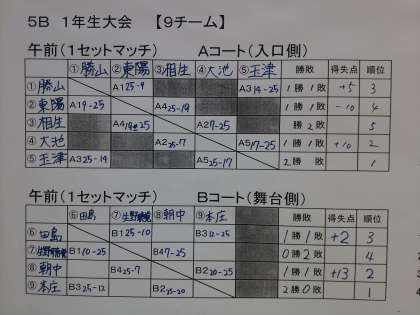 5B 1年生大会 【9チーム】
午前(1セットマッチ) Aコート(入口側)
①勝山 ②東陽 ③相生 ④大池 ⑤玉津 勝敗 得失点 順位
①勝山 A1 25-9 A3 14-25 1勝1敗 +5 3
②東陽 A1 9-25 A4 25-19 1勝1敗 -10 4
③相生 A4 19-25 A2 7-25 勝2敗 5
④大池 A2 25-7 A5 17-25 1勝1敗 +10 2
⑤玉津 A3 25-14 A5 25-17 2勝 敗 1
午前(1セットマッチ) Bコート(舞台側)
⑥田島 ⑦生野 ⑧朝中 ⑨本庄 勝敗 得失点 順位
⑥田島 B1 25-10 B3 12-25 1勝1敗 +2 3
⑦生野 B1 10-25 B4 7-25 0勝2敗 4
⑧朝中 B4 25-7 B2 20-25 1勝1敗 +13 2
⑨本庄 B3 25-12 B2 25-20 2勝0敗 1